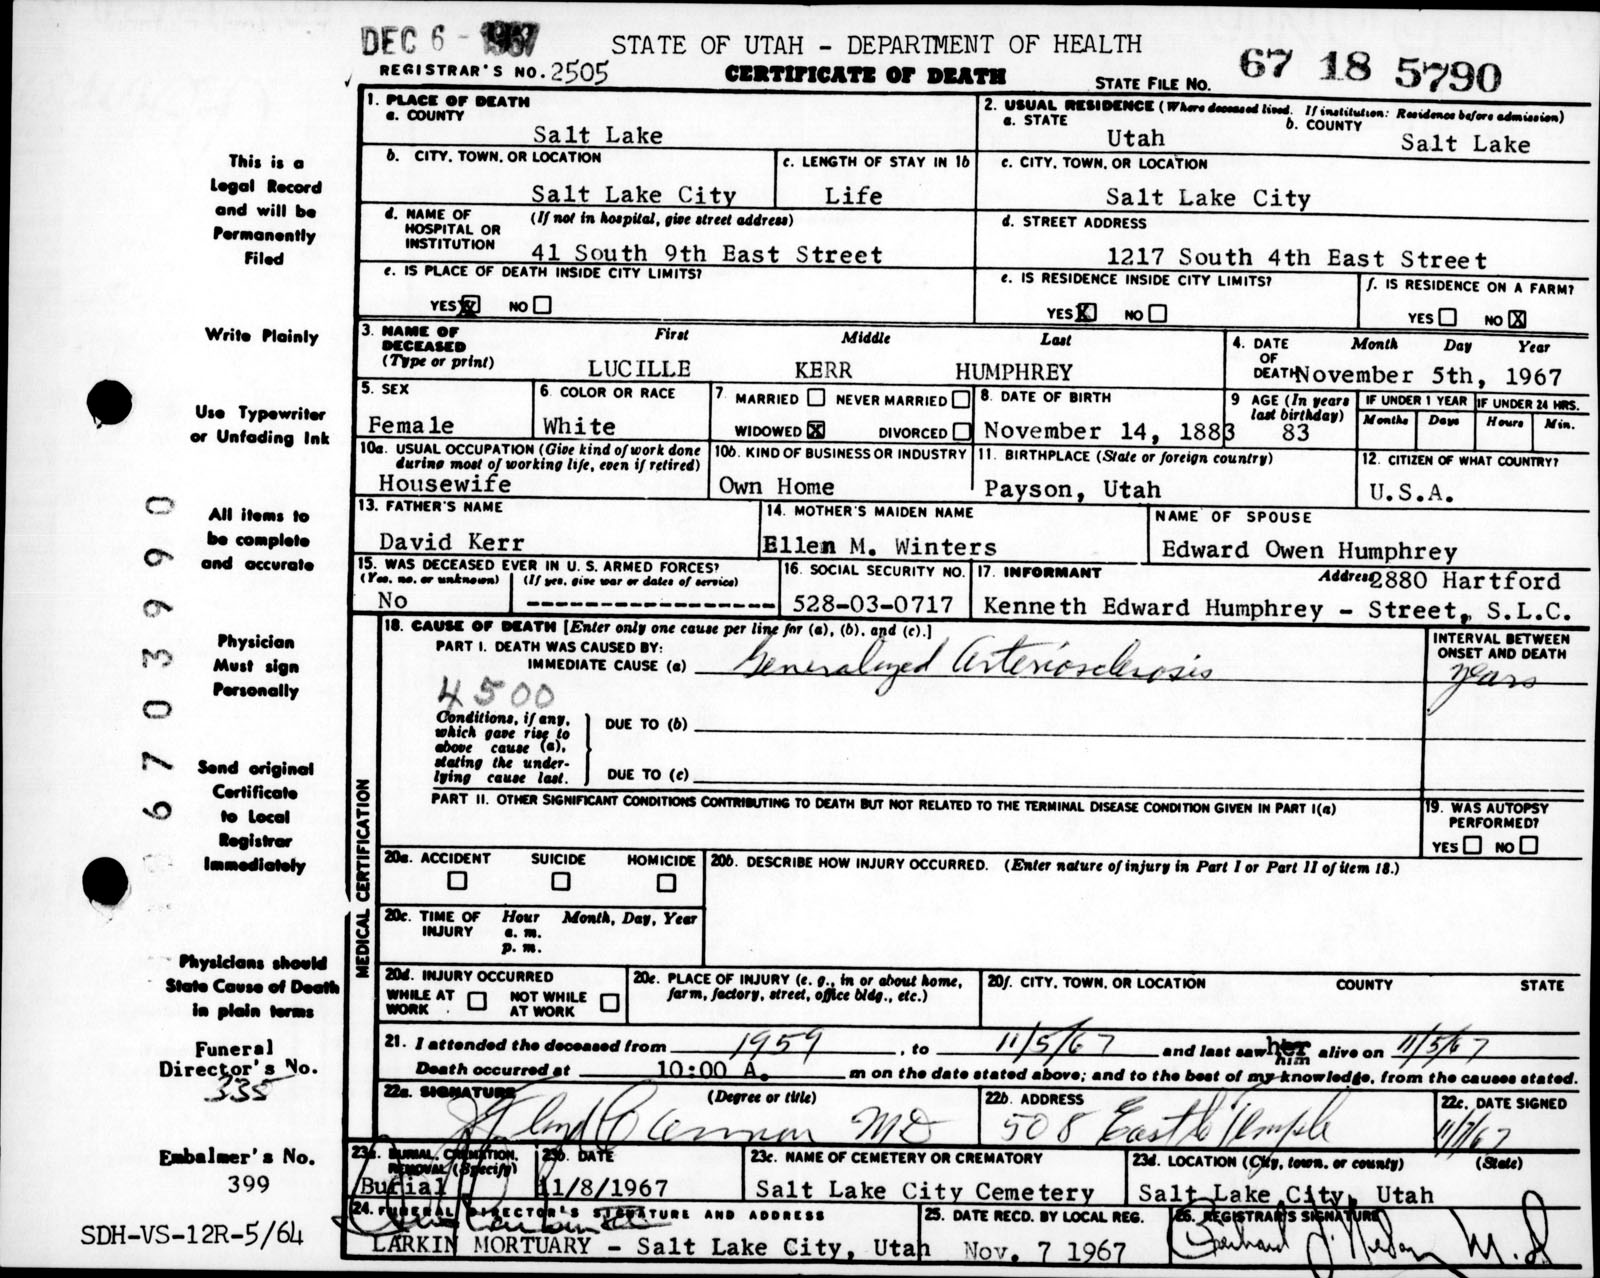 DEC 6 - 1967
STATE OF UTAH - DEPARTMENT OF HEALTH
REGISTRAR'S NO. 2505
CERTIFICATE OF DEATH
STATE FILE NO. 67 18 5790
This is a
Legal Record
and will be
Permanently
Filed
Write Plainly
Use Typewriter
or Unfading Ink
All items to
be complete
and accurate
Physician
Must sign
Personally
Send original
Certificate
to Local
Registrar
Immediately
Physicians should
State Cause of Death
in plain terms
Funeral
Director's No.
335
Embalmer's No.
399
SDH-VS-12R-5/64
67039990
1. PLACE OF DEATH
a. COUNTY
Salt Lake
2. USUAL RESIDENCE (Where deceased lived. If institution: Residence before admission)
a. STATE
Utah
b. COUNTY
Salt Lake
b. CITY, TOWN, OR LOCATION
Salt Lake City
c. LENGTH OF STAY IN 1b
Life
c. CITY, TOWN, OR LOCATION
Salt Lake City
d. NAME OF HOSPITAL OR INSTITUTION
(If not in hospital, give street address)
41 South 9th East Street
d. STREET ADDRESS
1217 South 4th East Street
e. IS PLACE OF DEATH INSIDE CITY LIMITS?
YES X NO
e. IS RESIDENCE INSIDE CITY LIMITS?
YES X NO
f. IS RESIDENCE ON A FARM?
YES NO X
3. NAME OF DECEASED (Type or print)
First Middle Last
LUCILLE KERR HUMPHREY
4. DATE OF DEATH
Month Day Year
November 5th, 1967
5. SEX
Female
6. COLOR OR RACE
White
7. MARRIED NEVER MARRIED
WIDOWED X DIVORCED
8. DATE OF BIRTH
November 14, 1883
9 AGE (In years last birthday)
83
IF UNDER 1 YEAR
Months Days
IF UNDER 24 HRS.
Hours Min.
10a. USUAL OCCUPATION (Give kind of work done
during most of working life, even if retired)
Housewife
10b. KIND OF BUSINESS OR INDUSTRY
Own Home
11. BIRTHPLACE (State or foreign country)
Payson, Utah
12. CITIZEN OF WHAT COUNTRY?
U.S.A.
13. FATHER'S NAME
David Kerr
14. MOTHER'S MAIDEN NAME
Ellen M. Winters
NAME OF SPOUSE
Edward Owen Humphrey
15. WAS DECEASED EVER IN U. S. ARMED FORCES?
(Yes, no, or unknown) (If yes, give war or dates of service)
No --------------------
16. SOCIAL SECURITY NO.
528-03-0717
17. INFORMANT Address 2880 Hartford
Kenneth Edward Humphrey - Street, S.L.C.
MEDICAL CERTIFICATION
18. CAUSE OF DEATH [Enter only one cause per line for (a), (b), and (c).]
PART I. DEATH WAS CAUSED BY:
IMMEDIATE CAUSE (a) Generalized Arteriosclerosis
INTERVAL BETWEEN
ONSET AND DEATH
years
4500
Conditions, if any,
which gave rise to
above cause (a),
stating the under-
lying cause last.
DUE TO (b)
DUE TO (c)
PART II. OTHER SIGNIFICANT CONDITIONS CONTRIBUTING TO DEATH BUT NOT RELATED TO THE TERMINAL DISEASE CONDITION GIVEN IN PART I(a)
19. WAS AUTOPSY
PERFORMED?
YES NO
20a. ACCIDENT SUICIDE HOMICIDE
20b. DESCRIBE HOW INJURY OCCURRED. (Enter nature of injury in Part I or Part II of item 18.)
20c. TIME OF INJURY
Hour Month, Day, Year
a. m.
p. m.
20d. INJURY OCCURRED
WHILE AT WORK NOT WHILE AT WORK
20e. PLACE OF INJURY (e. g., in or about home,
farm, factory, street, office bldg., etc.)
20f. CITY, TOWN, OR LOCATION COUNTY STATE
21. I attended the deceased from 1959, to 11/5/67 and last saw her him alive on 11/5/67
Death occurred at 10:00 A. m on the date stated above; and to the best of my knowledge, from the causes stated.
22a. SIGNATURE (Degree or title)
J Floyd Cannon MD
22b. ADDRESS
508 East So Temple
22c. DATE SIGNED
11/7/67
23a. BURIAL, CREMATION, REMOVAL (Specify)
Burial
23b. DATE
11/8/1967
23c. NAME OF CEMETERY OR CREMATORY
Salt Lake City Cemetery
23d. LOCATION (City, town, or county) (State)
Salt Lake City, Utah
24. FUNERAL DIRECTOR'S SIGNATURE AND ADDRESS
LARKIN MORTUARY - Salt Lake City, Utah
25. DATE RECD. BY LOCAL REG.
Nov. 7 1967
26. REGISTRAR'S SIGNATURE
M.D.